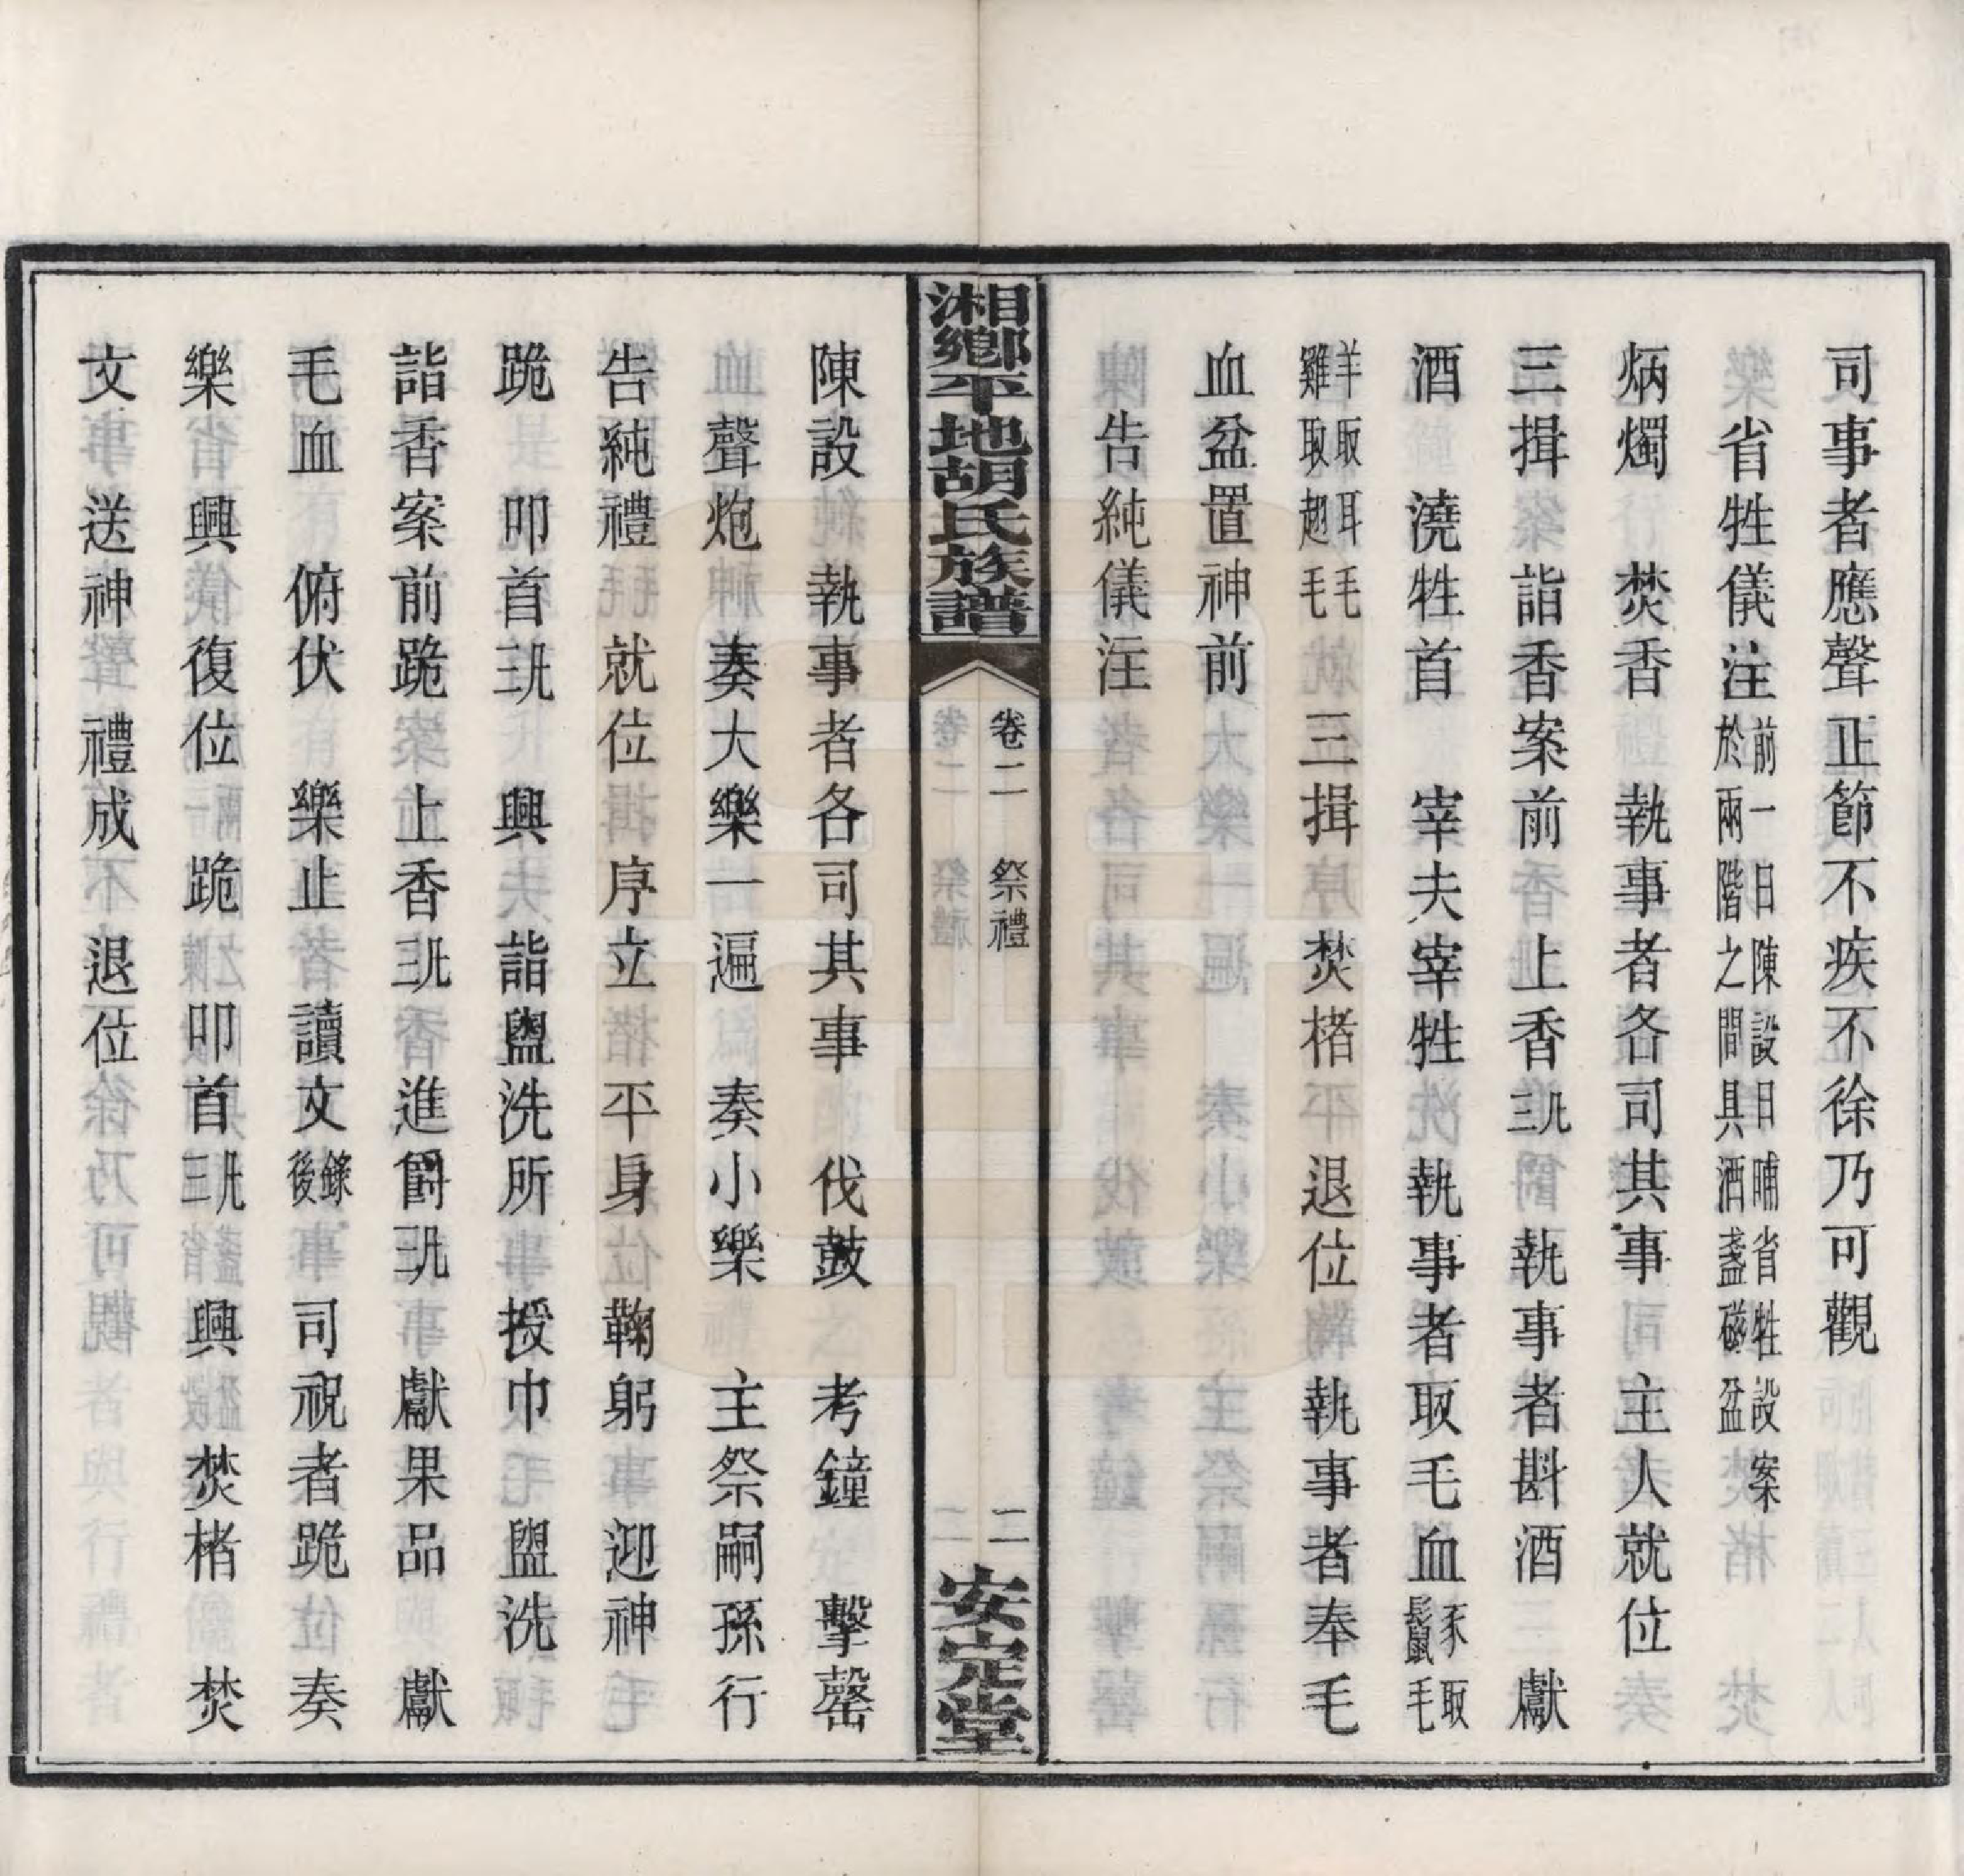 司事者應聲正節不疾不徐乃可觀
省牲儀注 前一日陳設日晡省牲設案
於兩階之間具酒盞磁盆
炳燭 焚香 執事者各司其事 主人就位
三揖 詣香案前上香三卂 執事者斟酒 獻
酒 澆牲首 宰夫宰牲 執事者取毛血 豕取
鬃鼠毛
羊取耳毛
雞取翅毛 三揖 焚楮 退位 執事者奉毛
血盆置神前
告純儀注
湘鄉平地胡氏族譜 卷二 祭禮 二 安定堂
陳設 執事者各司其事 伐鼓 考鐘 擊罄
聲炮 奏大樂一遍 奏小樂 主祭嗣孫行
告純禮 就位 序立 平身 鞠躬 迎神
跪 叩首三卂 興 詣盥洗所 授巾 盥洗
詣香案前跪 上香三卂 進爵三卂 獻果品 獻
毛血 俯伏 樂止 讀文 錄
後 司祝者跪 奏
樂 興 復位 跪 叩首三卂 興 焚楮 焚
文 送神 禮成 退位